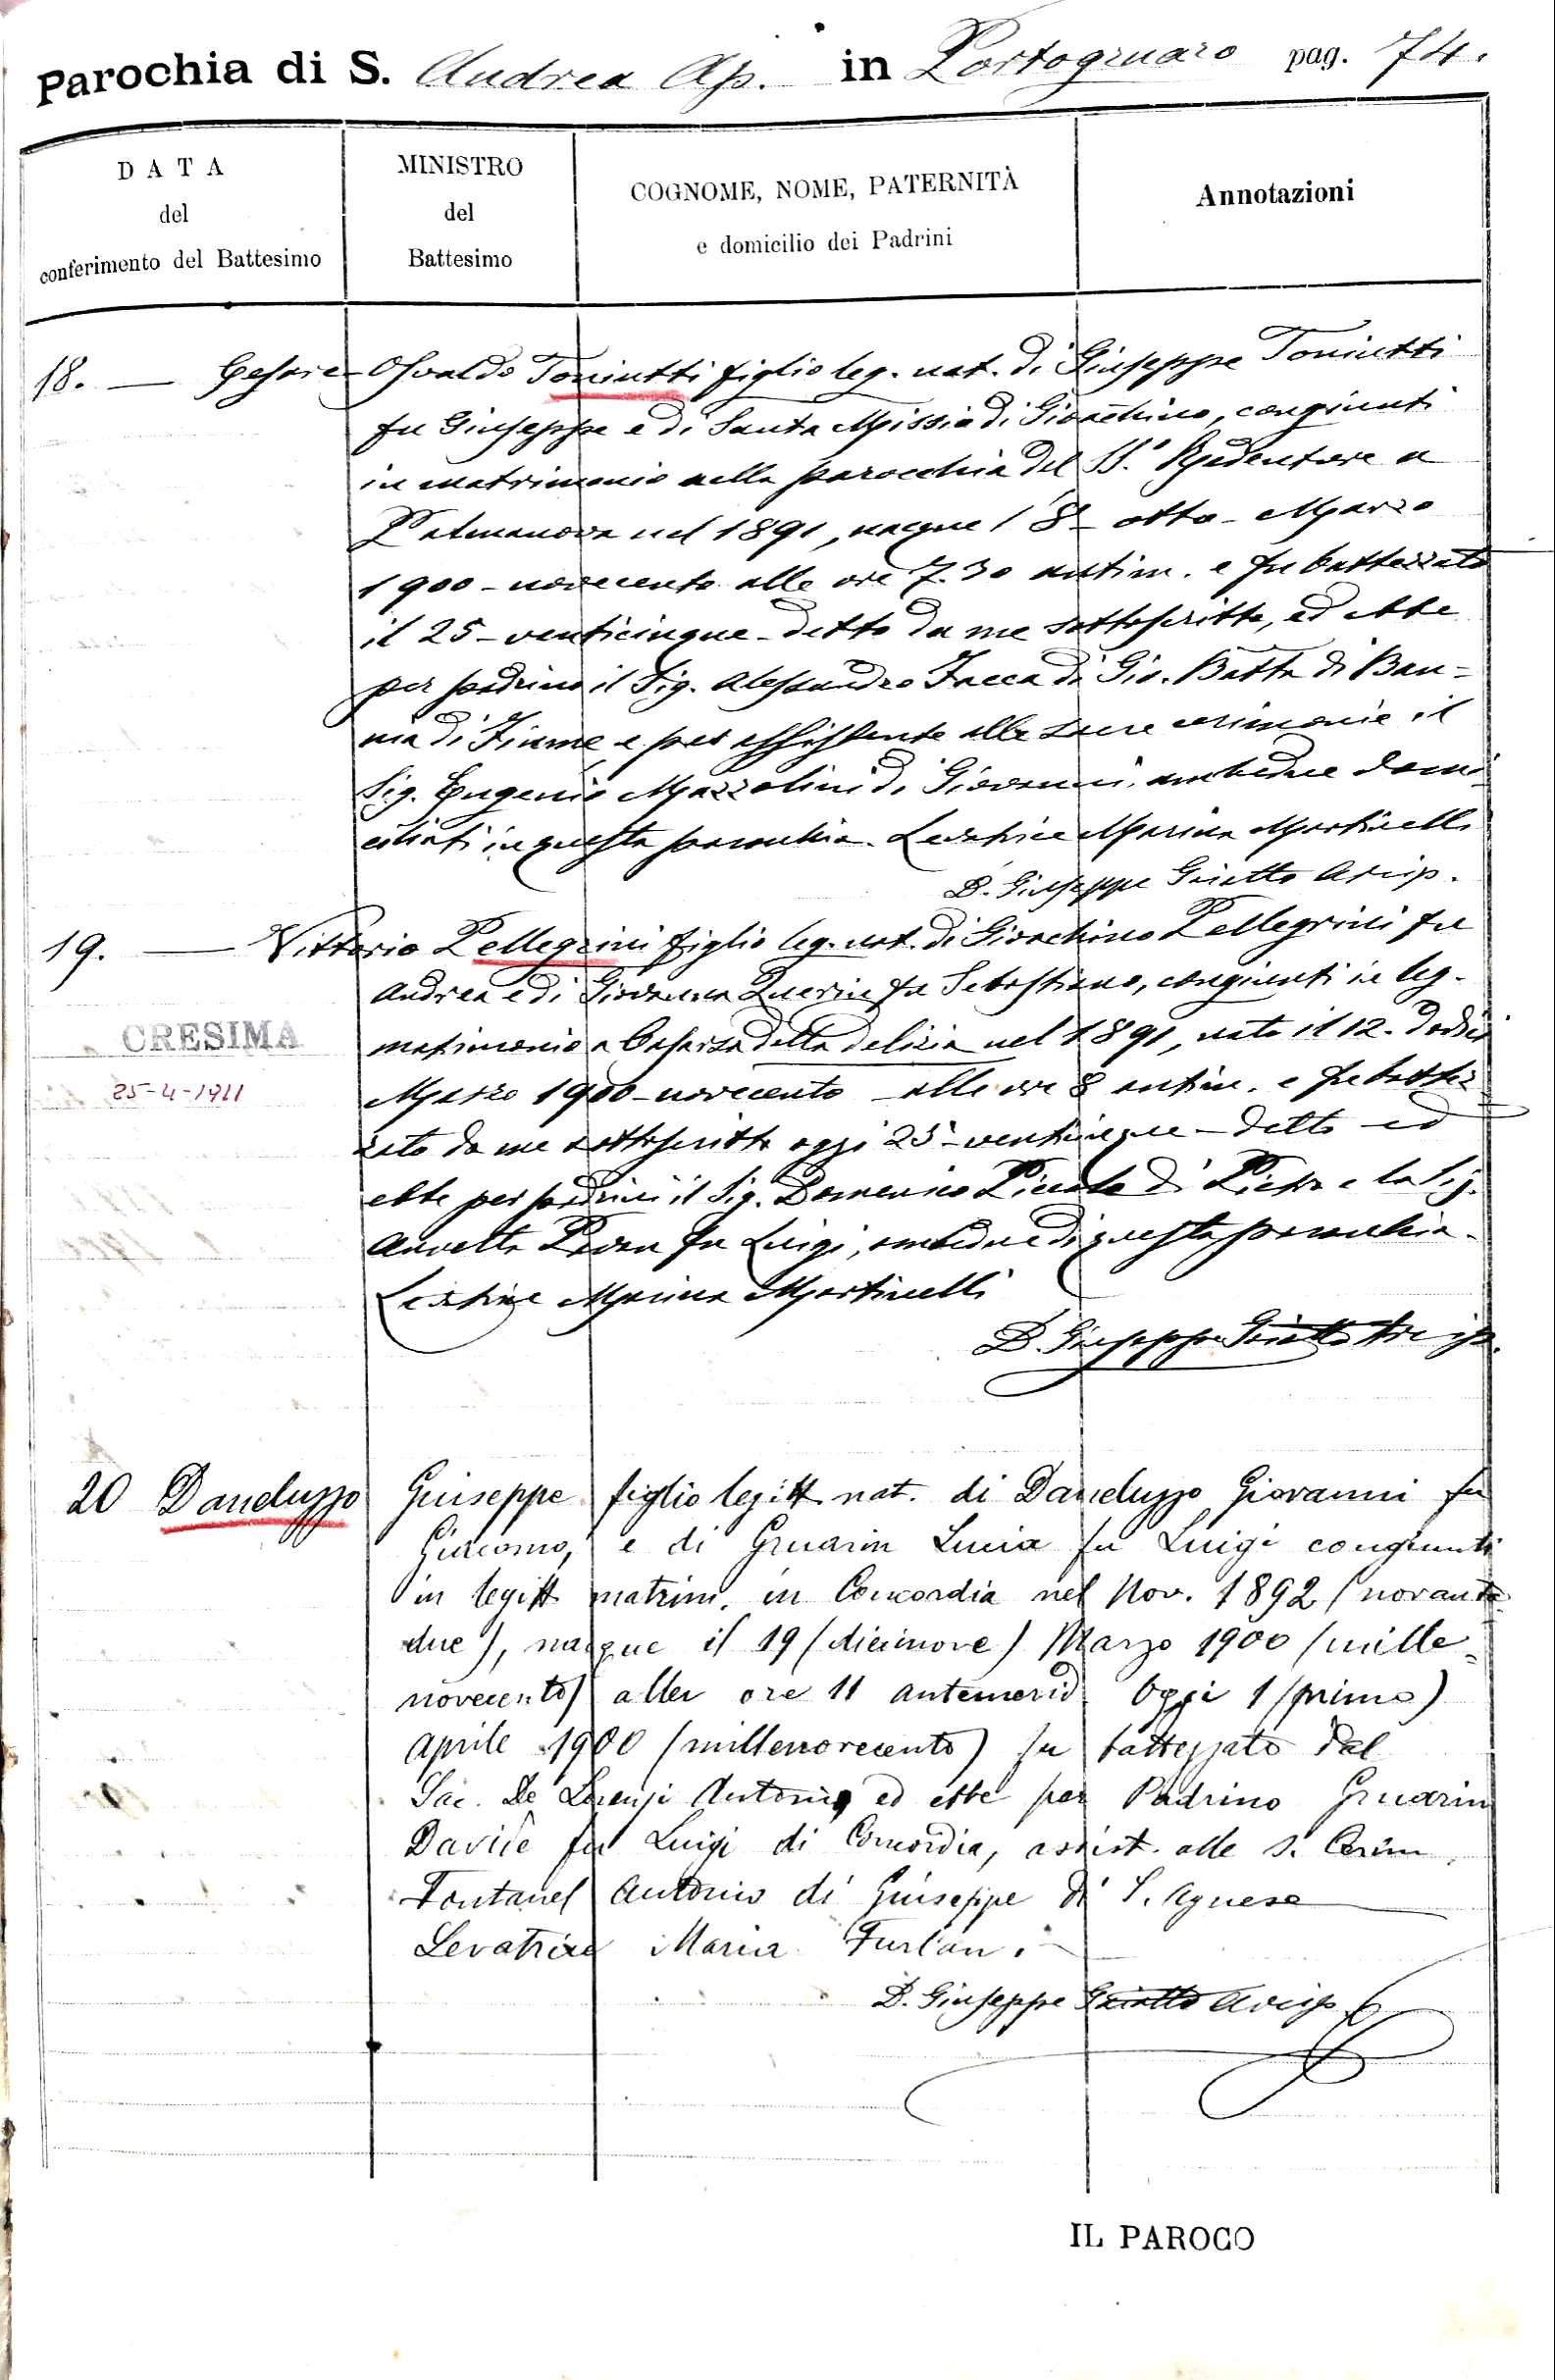 Parochia di S. Andrea Ap. in Portogruaro pag. 74.
DATA
del
conferimento del Battesimo
MINISTRO
del
Battesimo
COGNOME, NOME, PATERNITÀ
e domicilio dei Padrini
Annotazioni
18. — Cesare Osvaldo Toniutti figlio leg. nat. di Giuseppe Toniutti
fu Giuseppe e di Santa Missio di Gioachino, congiunti
in matrimonio nella parocchia del SS. Redentore a
Palmanova nel 1891, nacque l'8 - otto - Marzo
1900 - novecento alle ore 7.30 antim. e fu battezzato
il 25 - venticinque - detto da me sottoscritto, ed ebbe
per padrino il Sig. Alessandro Zacca di Gio. Batta di Ban-
nia di Fiume e per assistente alle sacre cerimonie il
Sig. Eugenio Mazzolini di Giovanni, ambedue domi-
ciliati in questa parocchia. Levatrice Marina Martinelli
D. Giuseppe Arcip.
19. — Vittorio Pellegrini figlio leg. nat. di Gioachino Pellegrini fu
Andrea e di Giovanna Querin fu Sebastiano, congiunti in leg.
matrimonio a Casarsa della delizia nel 1891, nato il 12 - dodici
CRESIMA
25-4-1911
Marzo 1900 - novecento - alle ore 8 antim. e fu battez-
zato da me sottoscritto oggi 25 - venticinque - detto ed
ebbe per padrini il Sig. Domenico Piccolo di Pietro e la Sig.
Annetta Pavan fu Luigi, ambedue di questa parocchia.
Levatrice Marina Martinelli
D. Giuseppe Arcip.
20 Daneluzzo Giuseppe figlio legitt. nat. di Daneluzzo Giovanni fu
Giacomo, e di Gruarin Lucia fu Luigi congiunti
in legitt matrim. in Concordia nel Nov. 1892 (novanta
due), nacque il 19 (diecinove) Marzo 1900 (mille-
novecento) alle ore 11 antemerid. Oggi 1 (primo)
aprile 1900 (millenovecento) fu battezzato dal
Sac. De Lorenzi Antonio ed ebbe per Padrino Gruarin
Davide fu Luigi di Concordia, assist. alle s. Cerim.
Fontanel Antonio di Giuseppe di S. Agnese
Levatrice Maria Furlan.
D. Giuseppe Arcip
IL PAROCO